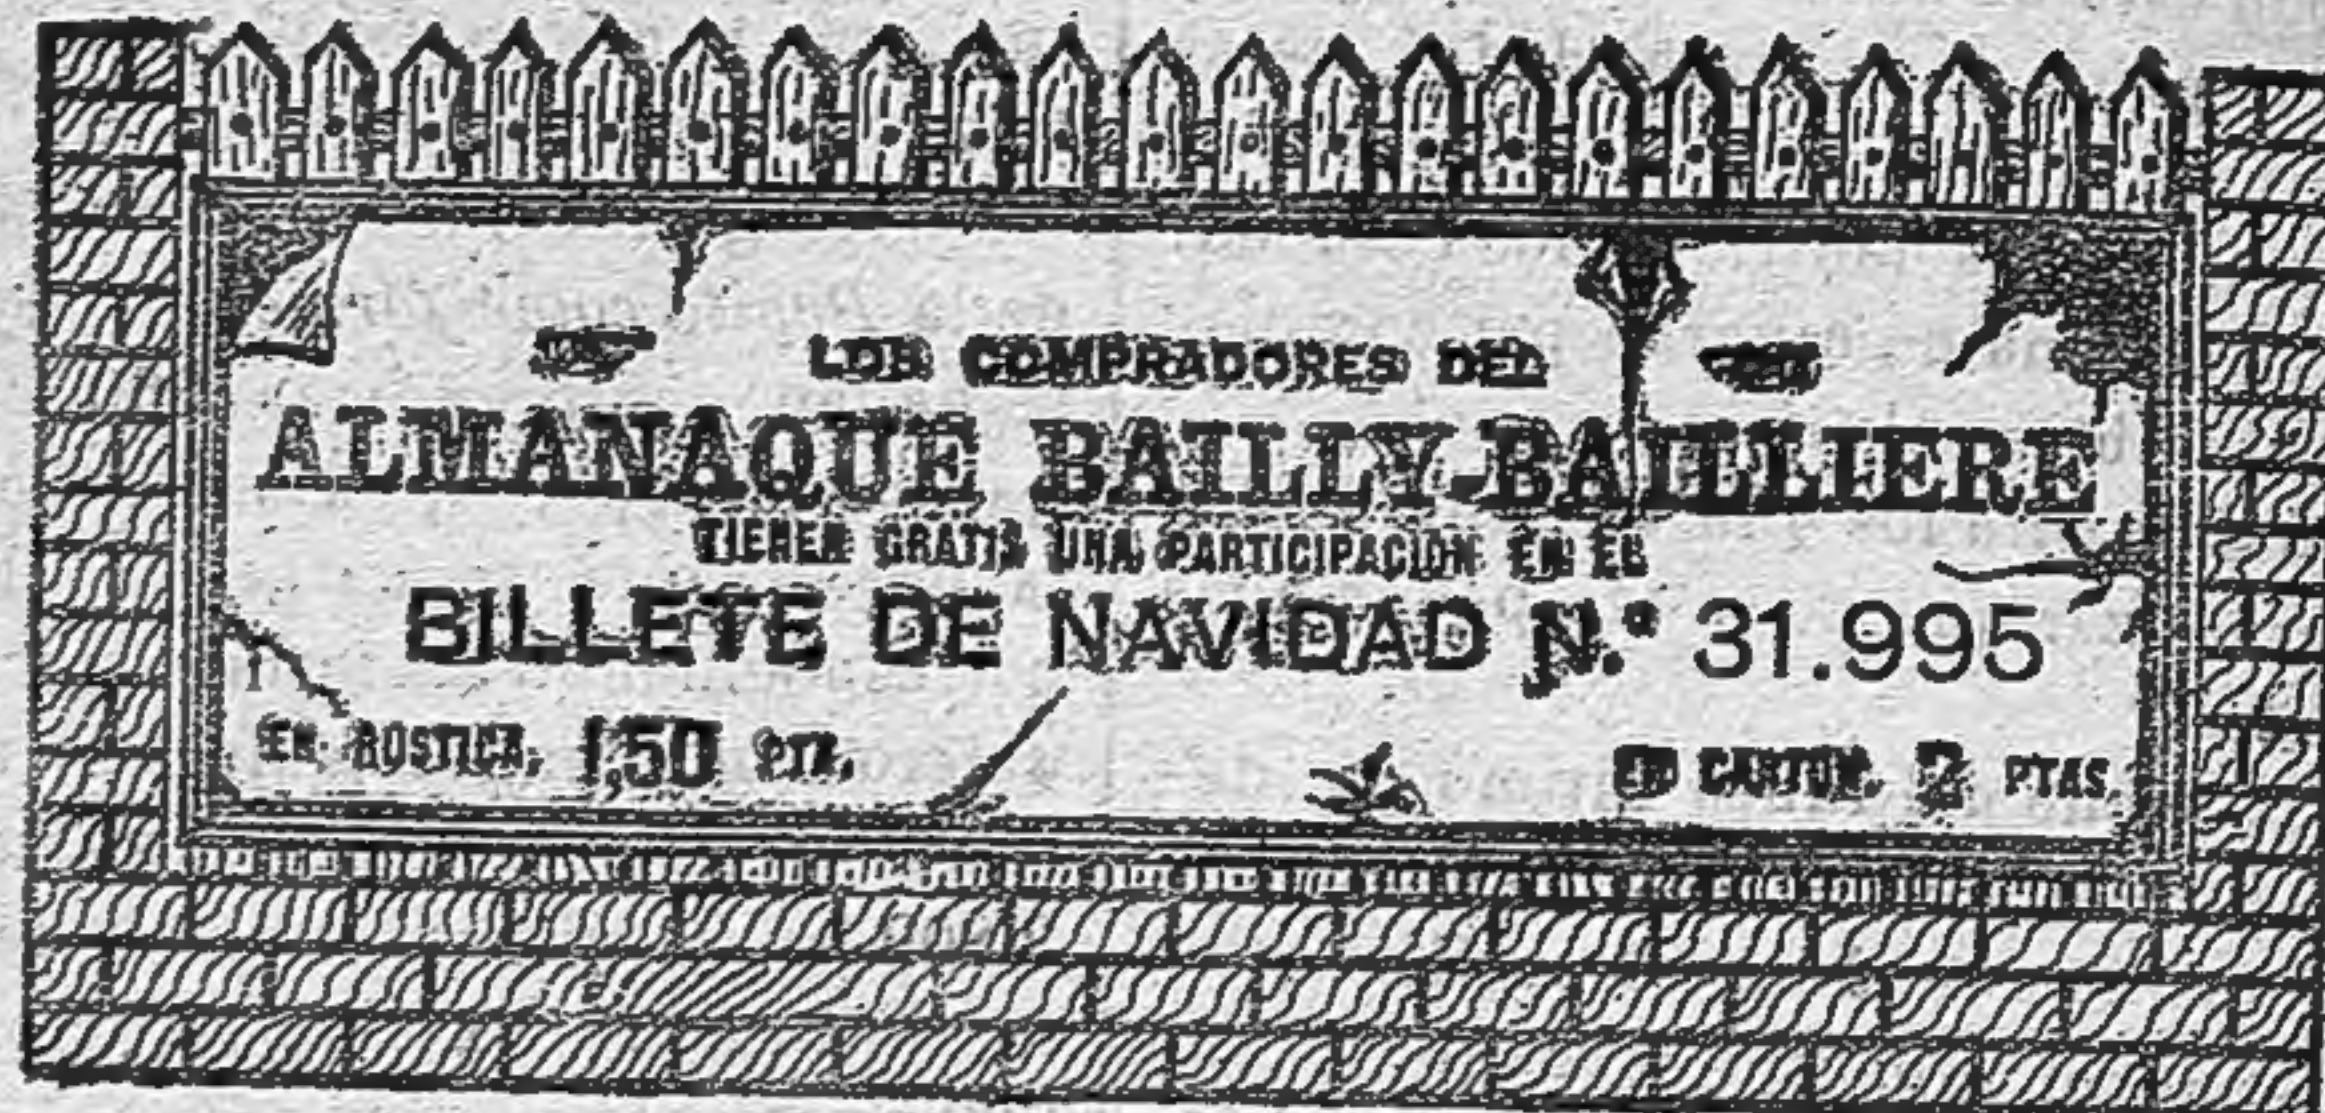 LOS COMPRADORES DEL
ALMANAQUE BAILLY-BAILLIERE
TIENEN GRATIS UNA PARTICIPACIÓN EN EL
BILLETE DE NAVIDAD N.º 31.995
EN RÚSTICA, 1,50 PTA.
EN CARTÓN, 2 PTAS.